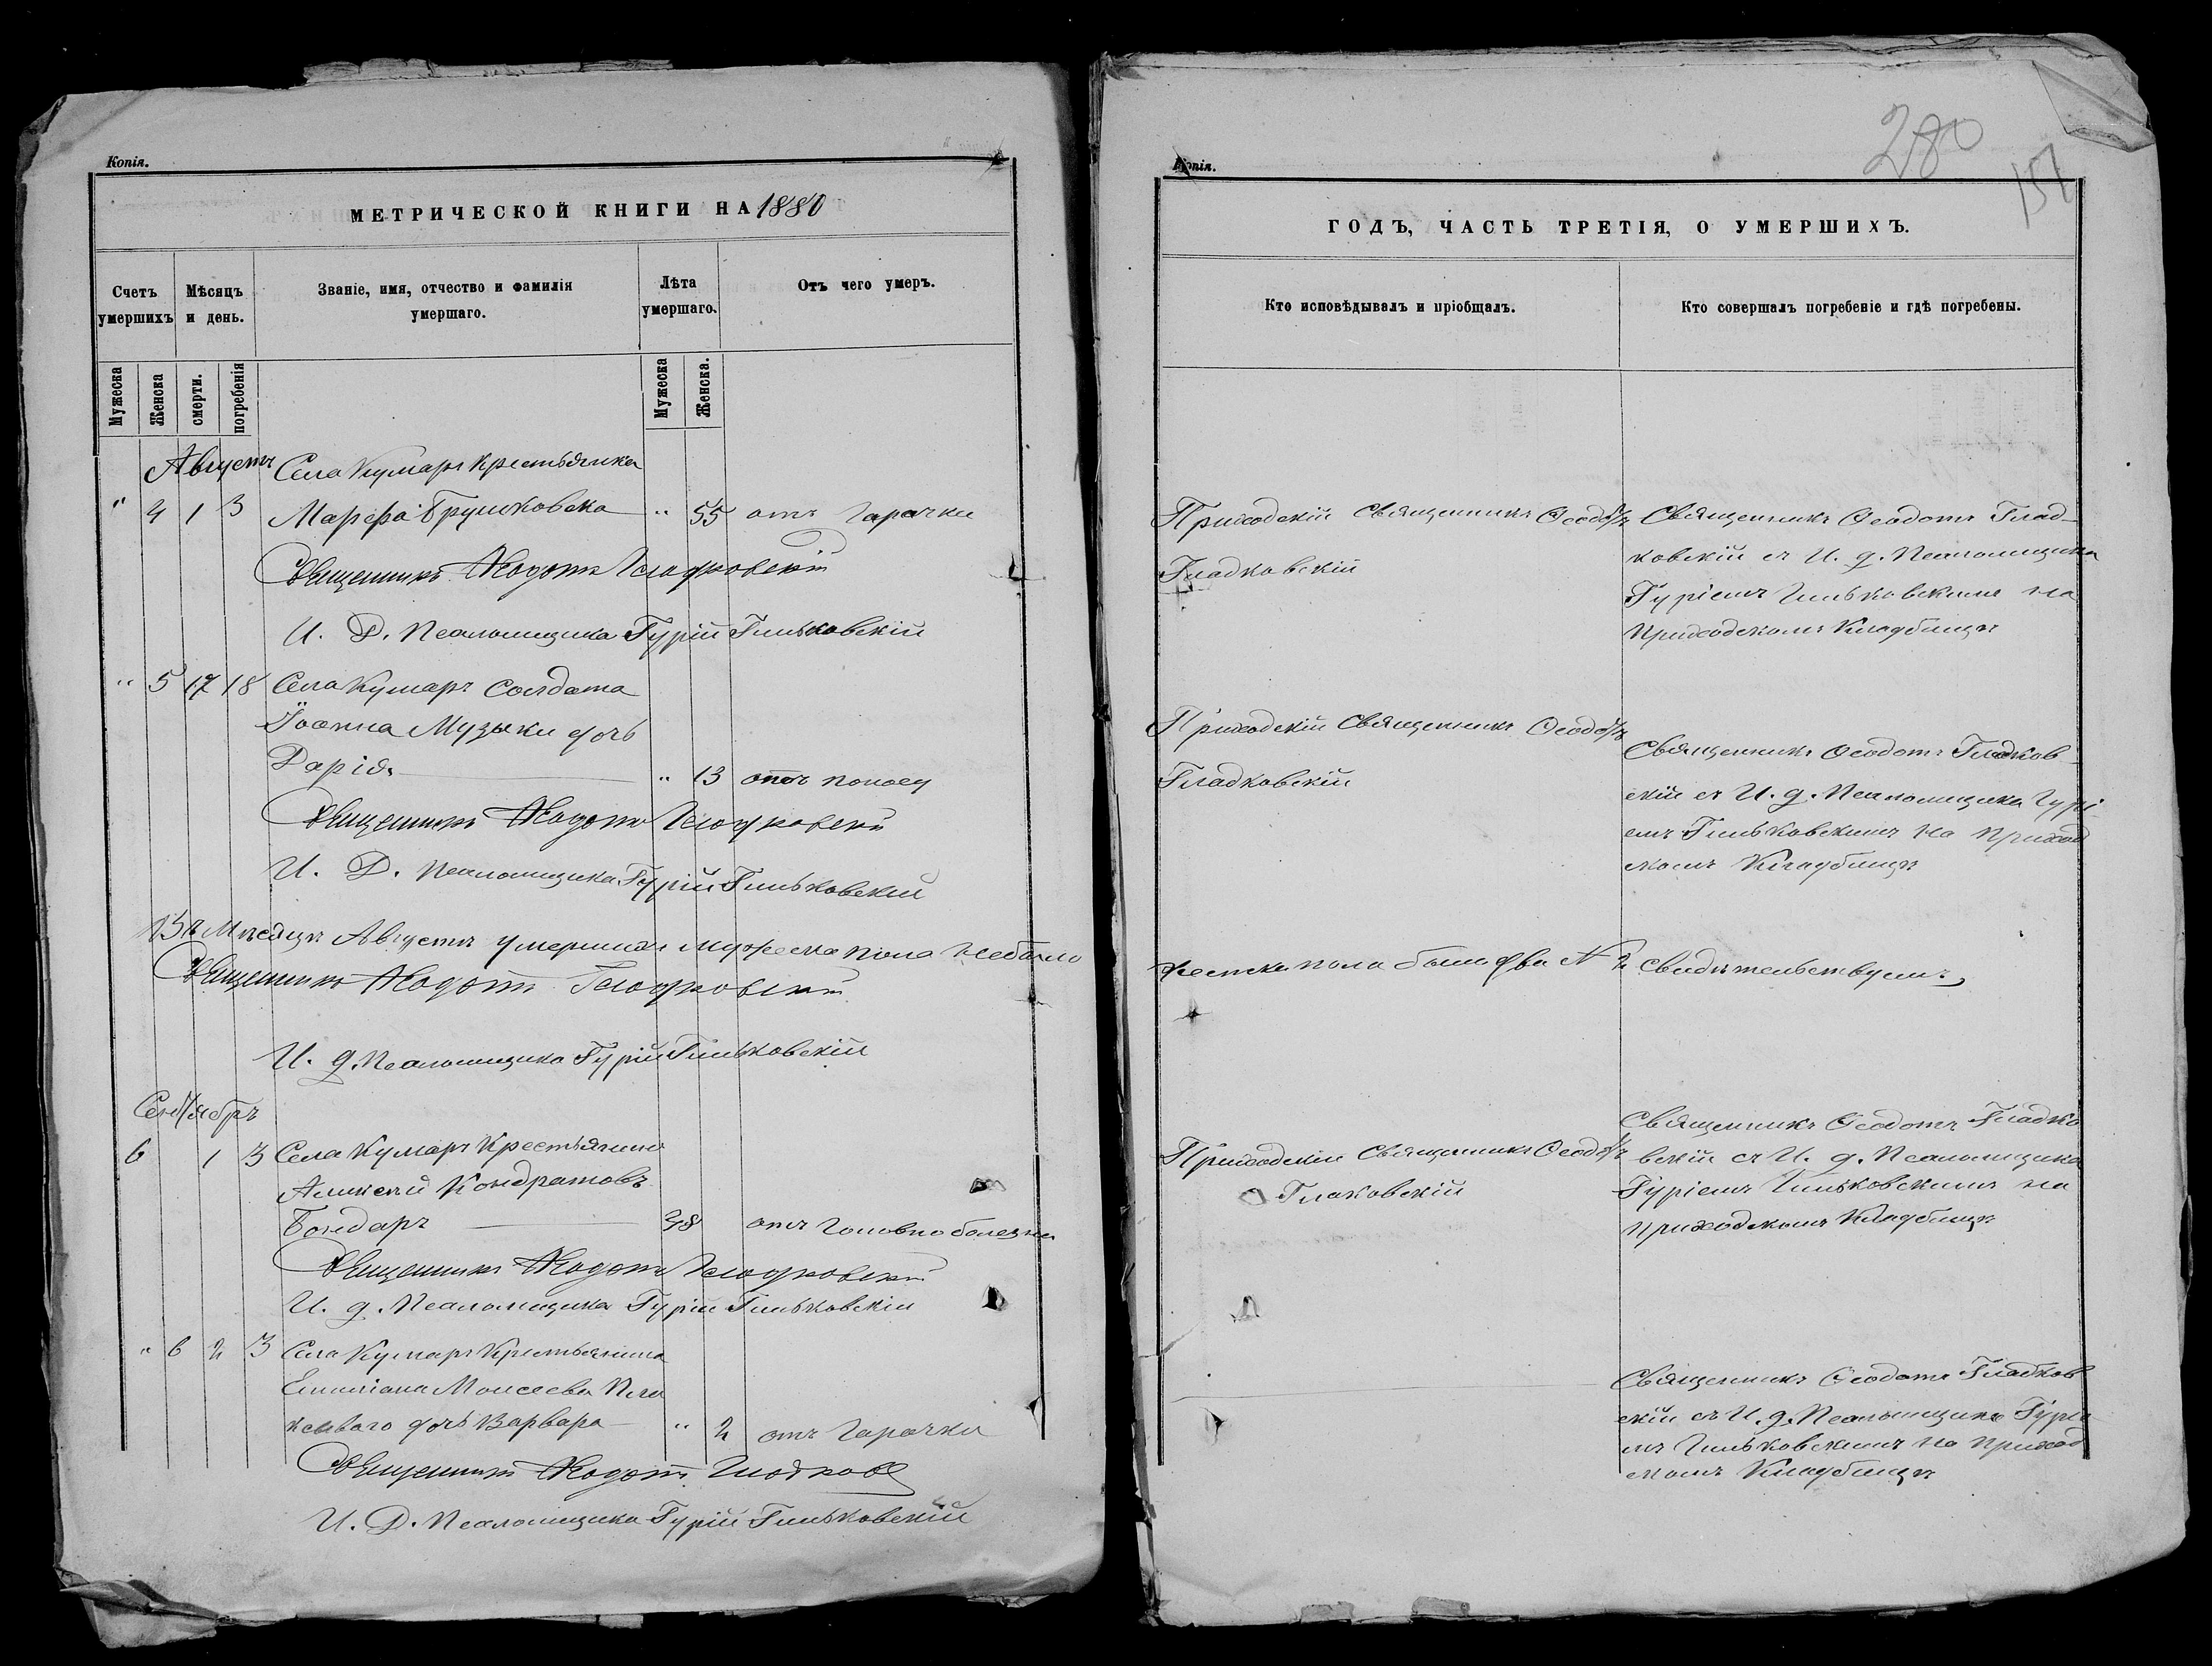 Копія.
МЕТРИЧЕСКОЙ КНИГИ НА 1880
Счетъ умершихъ
Мѣсяцъ и день.
Званіе, имя, отчество и фамилія умершаго.
Лѣта умершаго.
Отъ чего умеръ.
Мужеска
Женска
смерти.
погребенія
Мужеска
Женска.
Августъ Села Кумаръ крестьянка
" 4 1 3 Марфа " 55 отъ Гарачки
Священникъ Ѳеодотъ Гладковскій
И. Д. Псаломщика Гурій Гиньковскій
" 5 17 18 Села Кумаръ Солдата
Іоанна Музыки дочь
Дарія " 13 отъ поносу
Священникъ Ѳеодотъ Гладковскій
И. Д. Псаломщика Гурій Гиньковскій
Въ Мѣсяцѣ Августѣ умершихъ мужеска пола небыло
Священникъ Ѳеодотъ Гладковскій
И. д. Псаломщика Гурій Гиньковскій
Сентябрь
6 1 3 Села Кумаръ Крестьянинъ
Кондратовъ
Бондарь 38 отъ Головно болезни
Священникъ Ѳеодотъ Гладковскій
И. д. Псаломщика Гурій Гиньковскій
" 6 2 3 Села Кумаръ Крестьянина
Емиліана Моисеева
дочь Варвара " 2 отъ Гарачки
Священникъ Ѳеодотъ
И. Д. Псаломщика Гурій Гиньковскій
Копія.
280
157
ГОДЪ, ЧАСТЬ ТРЕТІЯ, О УМЕРШИХЪ.
Кто исповѣдывалъ и пріобщалъ.
Кто совершалъ погребеніе и гдѣ погребены.
Приходскій Священникъ Ѳеодотъ
Гладковскій
Священникъ Ѳеодотъ Глад-
ковскій съ И. д. Псаломщика
Гуріемъ Гиньковскимъ на
приходскомъ Кладбищѣ
Приходскій Священникъ Ѳеодотъ
Гладковскій
Священникъ Ѳеодотъ Гладков-
скій съ И. д. Псаломщика Гурі-
емъ Гиньковскимъ на приход
скомъ Кладбищѣ
женска пола было два № 2 свидѣтельствуемъ,
Приходскій Священникъ Ѳеодотъ
Глаковскій
Священникъ Ѳеодотъ Гладко
вскій съ И. д. Псаломщика
Гуріемъ Гиньковскимъ на
приходскомъ Кладбищѣ
Священникъ Ѳеодотъ Гладков
скій съ И. д. Псаломщика Гуріе
мъ Гиньковскимъ на приход
скомъ Кладбищѣ